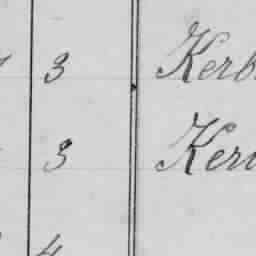 3 Kerb
3 Ker
4